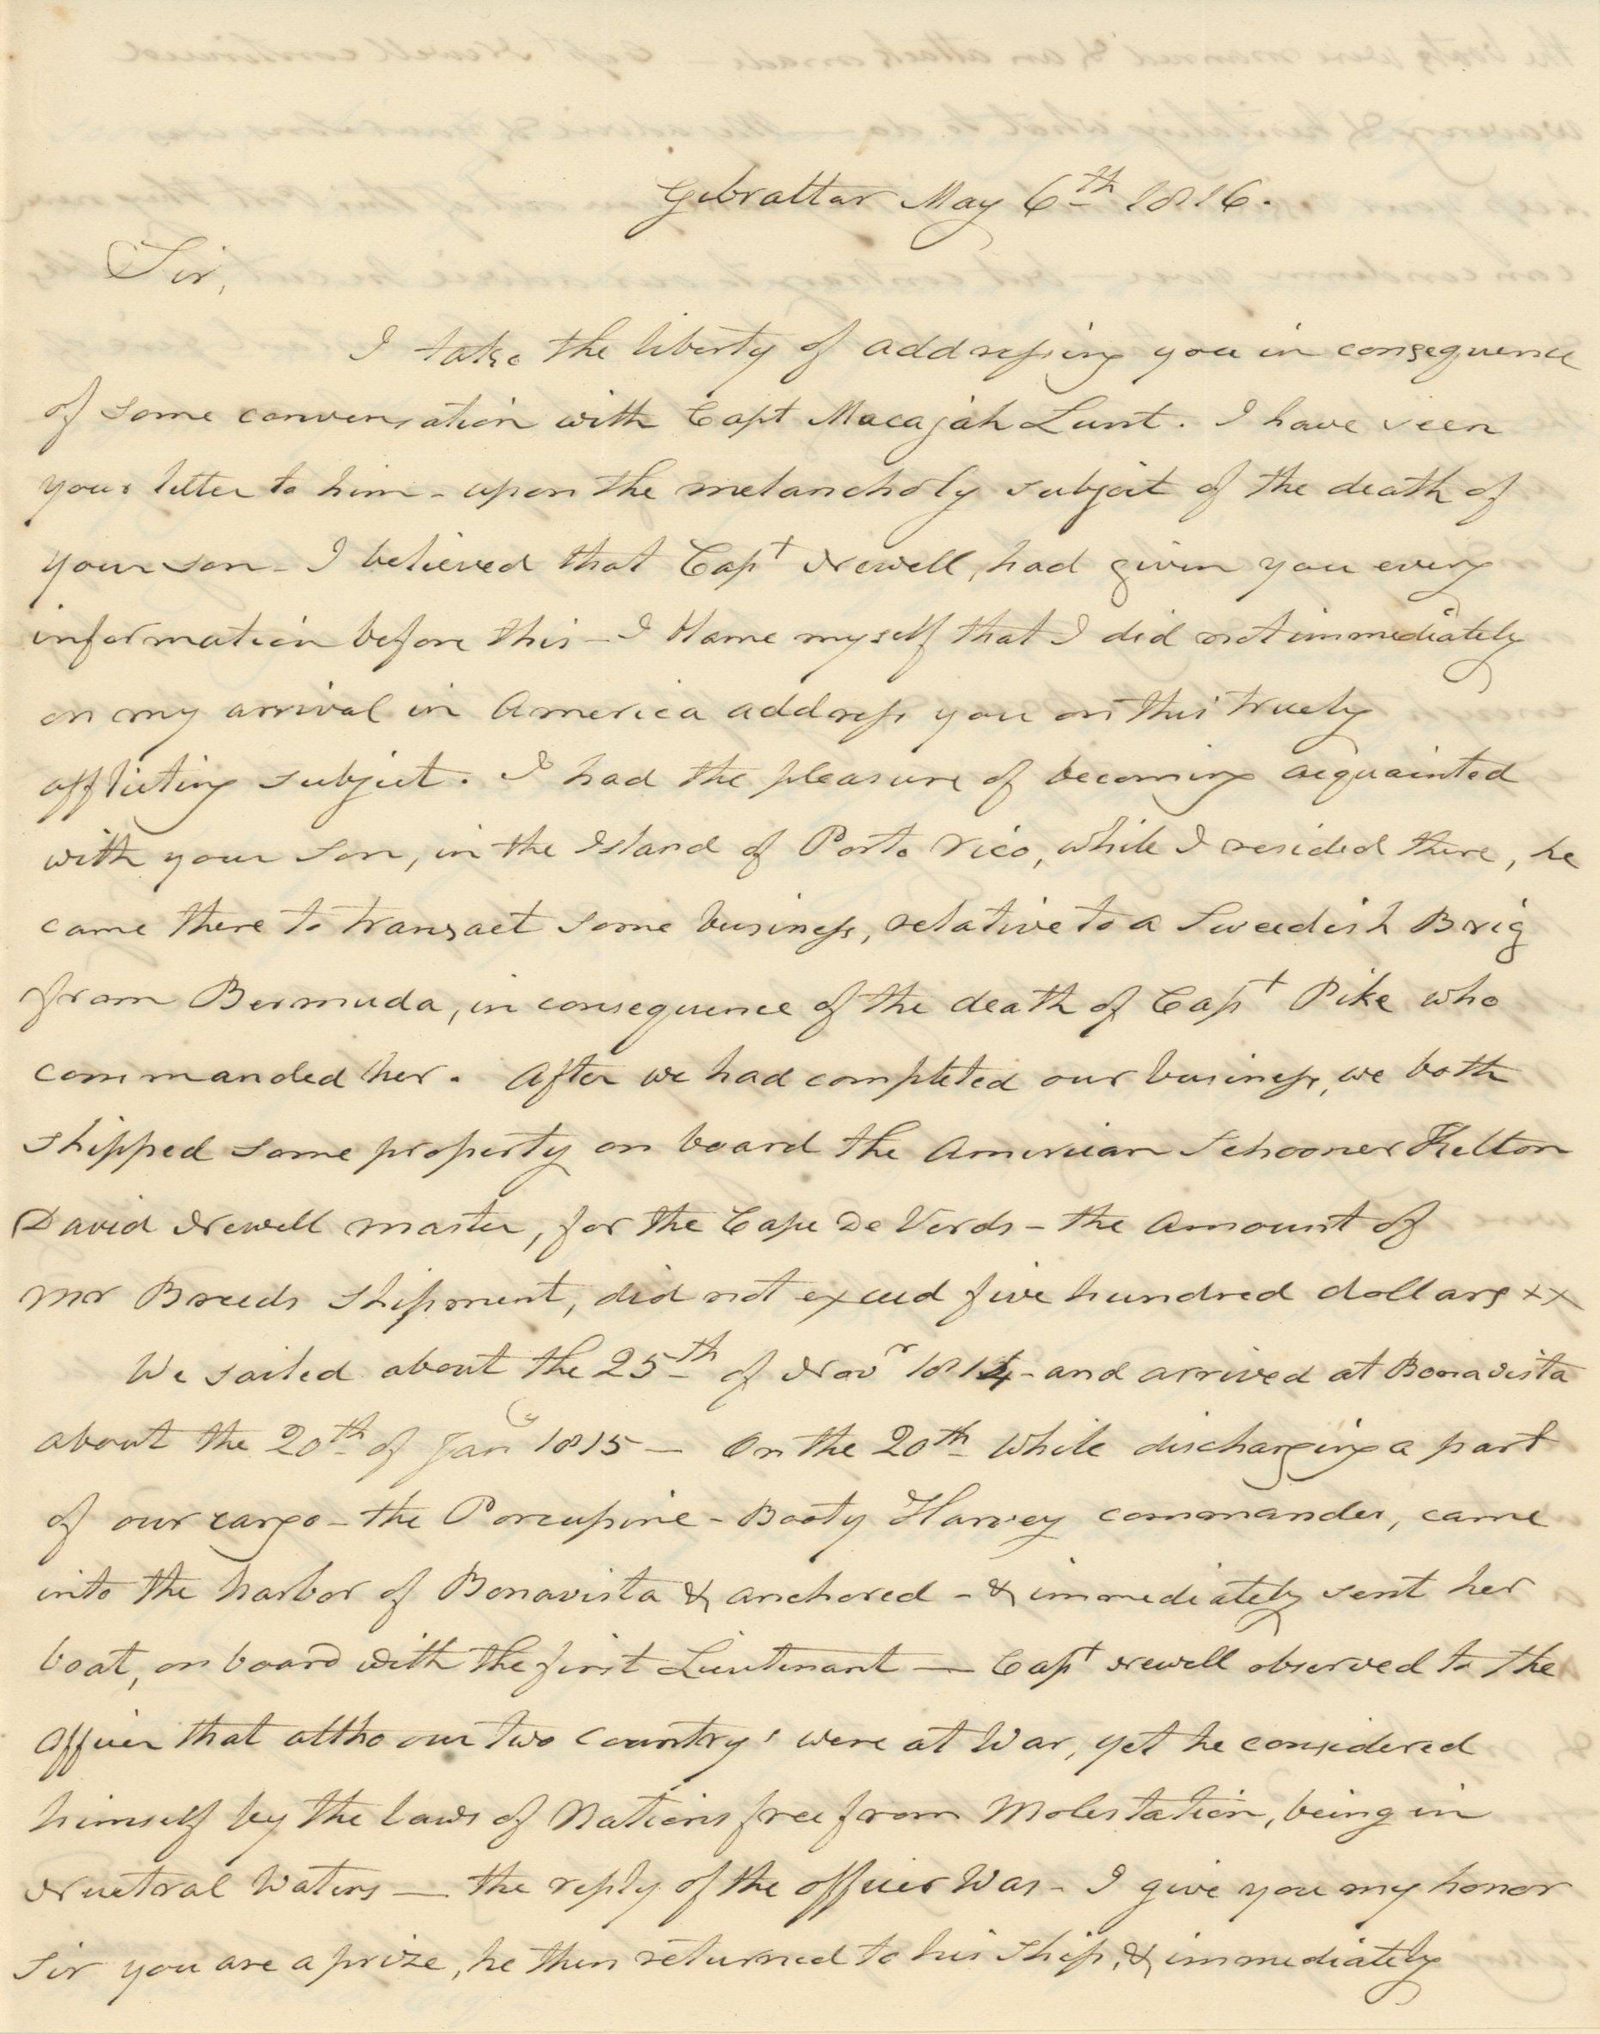 Gibraltar May 6th 1816.
Sir,
I take the liberty of addressing you in consequence
of some conversation with Capt Macajah Lunt. I have seen
your letter to him - upon the melancholy subject of the death of
your son - I believed that Capt Newell, had given you every
information before this - I blame myself that I did not immediately
on my arrival in America address you on this truely
afflicting subject. I had the pleasure of becoming acquainted
with your son, in the Island of Porto rico, while I resided there, he
came there to transact some business, relative to a Sweedish Brig
from Bermuda, in consequence of the death of Capt Pike who
commanded her. After we had completed our business, we both
shipped some property on board the American Schooner Kelton
David Newell master, for the Cape De Verds - the Amount of
Mr Breeds shipment, did not exceed five hundred dollars xx
We sailed about the 25th of Novr 1814 - and arrived at Bonavista
about the 20th of Jany 1815 - On the 20th while discharging a part
of our cargo - the Porcupine - Booty Harvey commander, came
into the harbor of Bonavista & anchored - & immediately sent her
boat, on board with the first Lieutenant - Capt Newell observed to the
officer that altho our two country's were at War, yet he considered
himself by the laws of Nations free from Molestation, being in
Nuetral Waters - the reply of the officer Was - I give you my honor
Sir you are a prize, he then returned to his ship, & immediately